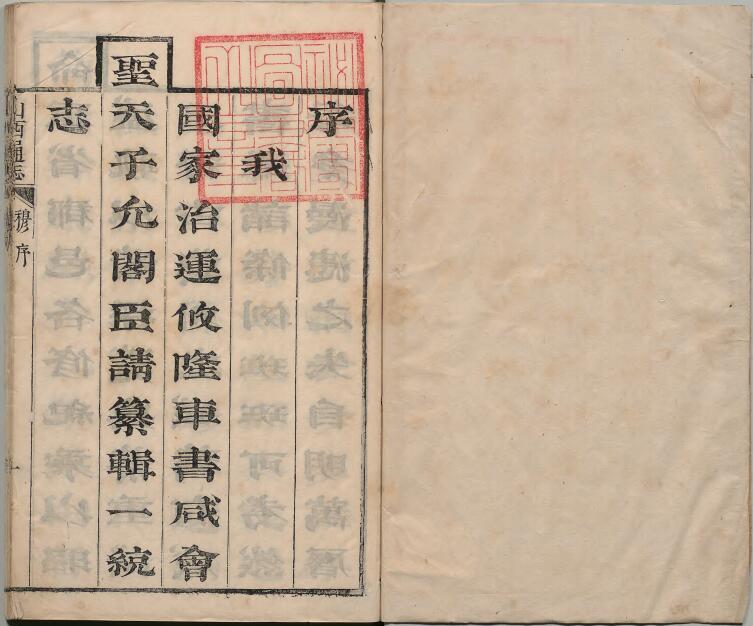 序
我
國家治運攸隆車書咸會
聖天子允閣臣請纂輯一統
志
山西通志 穆序